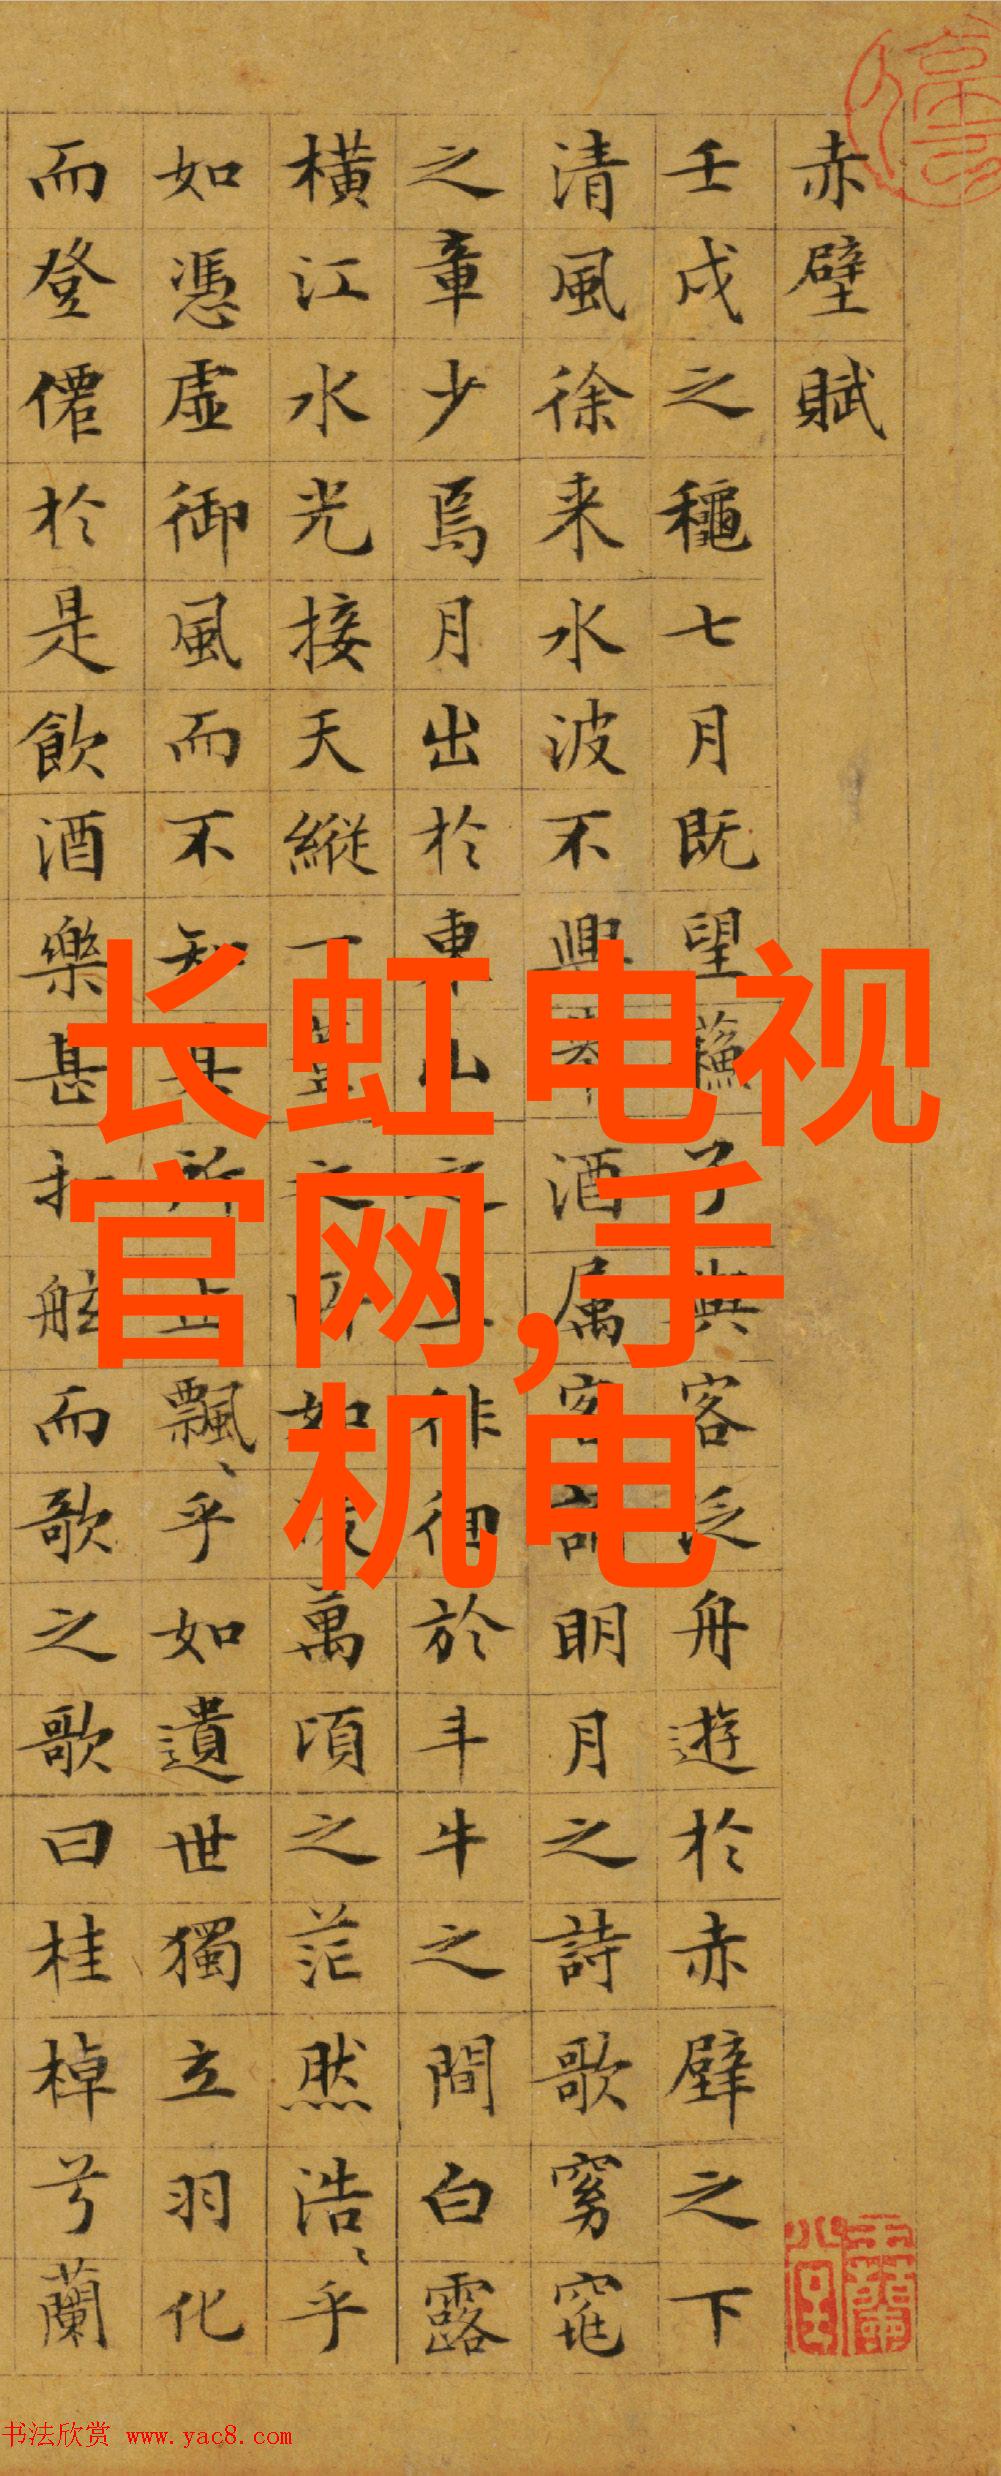 赤壁賦
壬戌之龝七月既望蘓子與客泛舟遊於赤壁之下
清風徐来水波不興舉酒属客誦明月之詩歌窈窕
之章少焉月出於東山之上徘徊於斗牛之間白露
橫江水光接天縱一葦之所如凌萬頃之茫然浩、乎
如憑虛御風而不知其所止飄、乎如遺世獨立羽化
而登僊於是飲酒樂甚扣舷而歌之歌曰桂棹兮蘭
长虹电视
官网,手
机电
书法欣赏 www.yac8.com